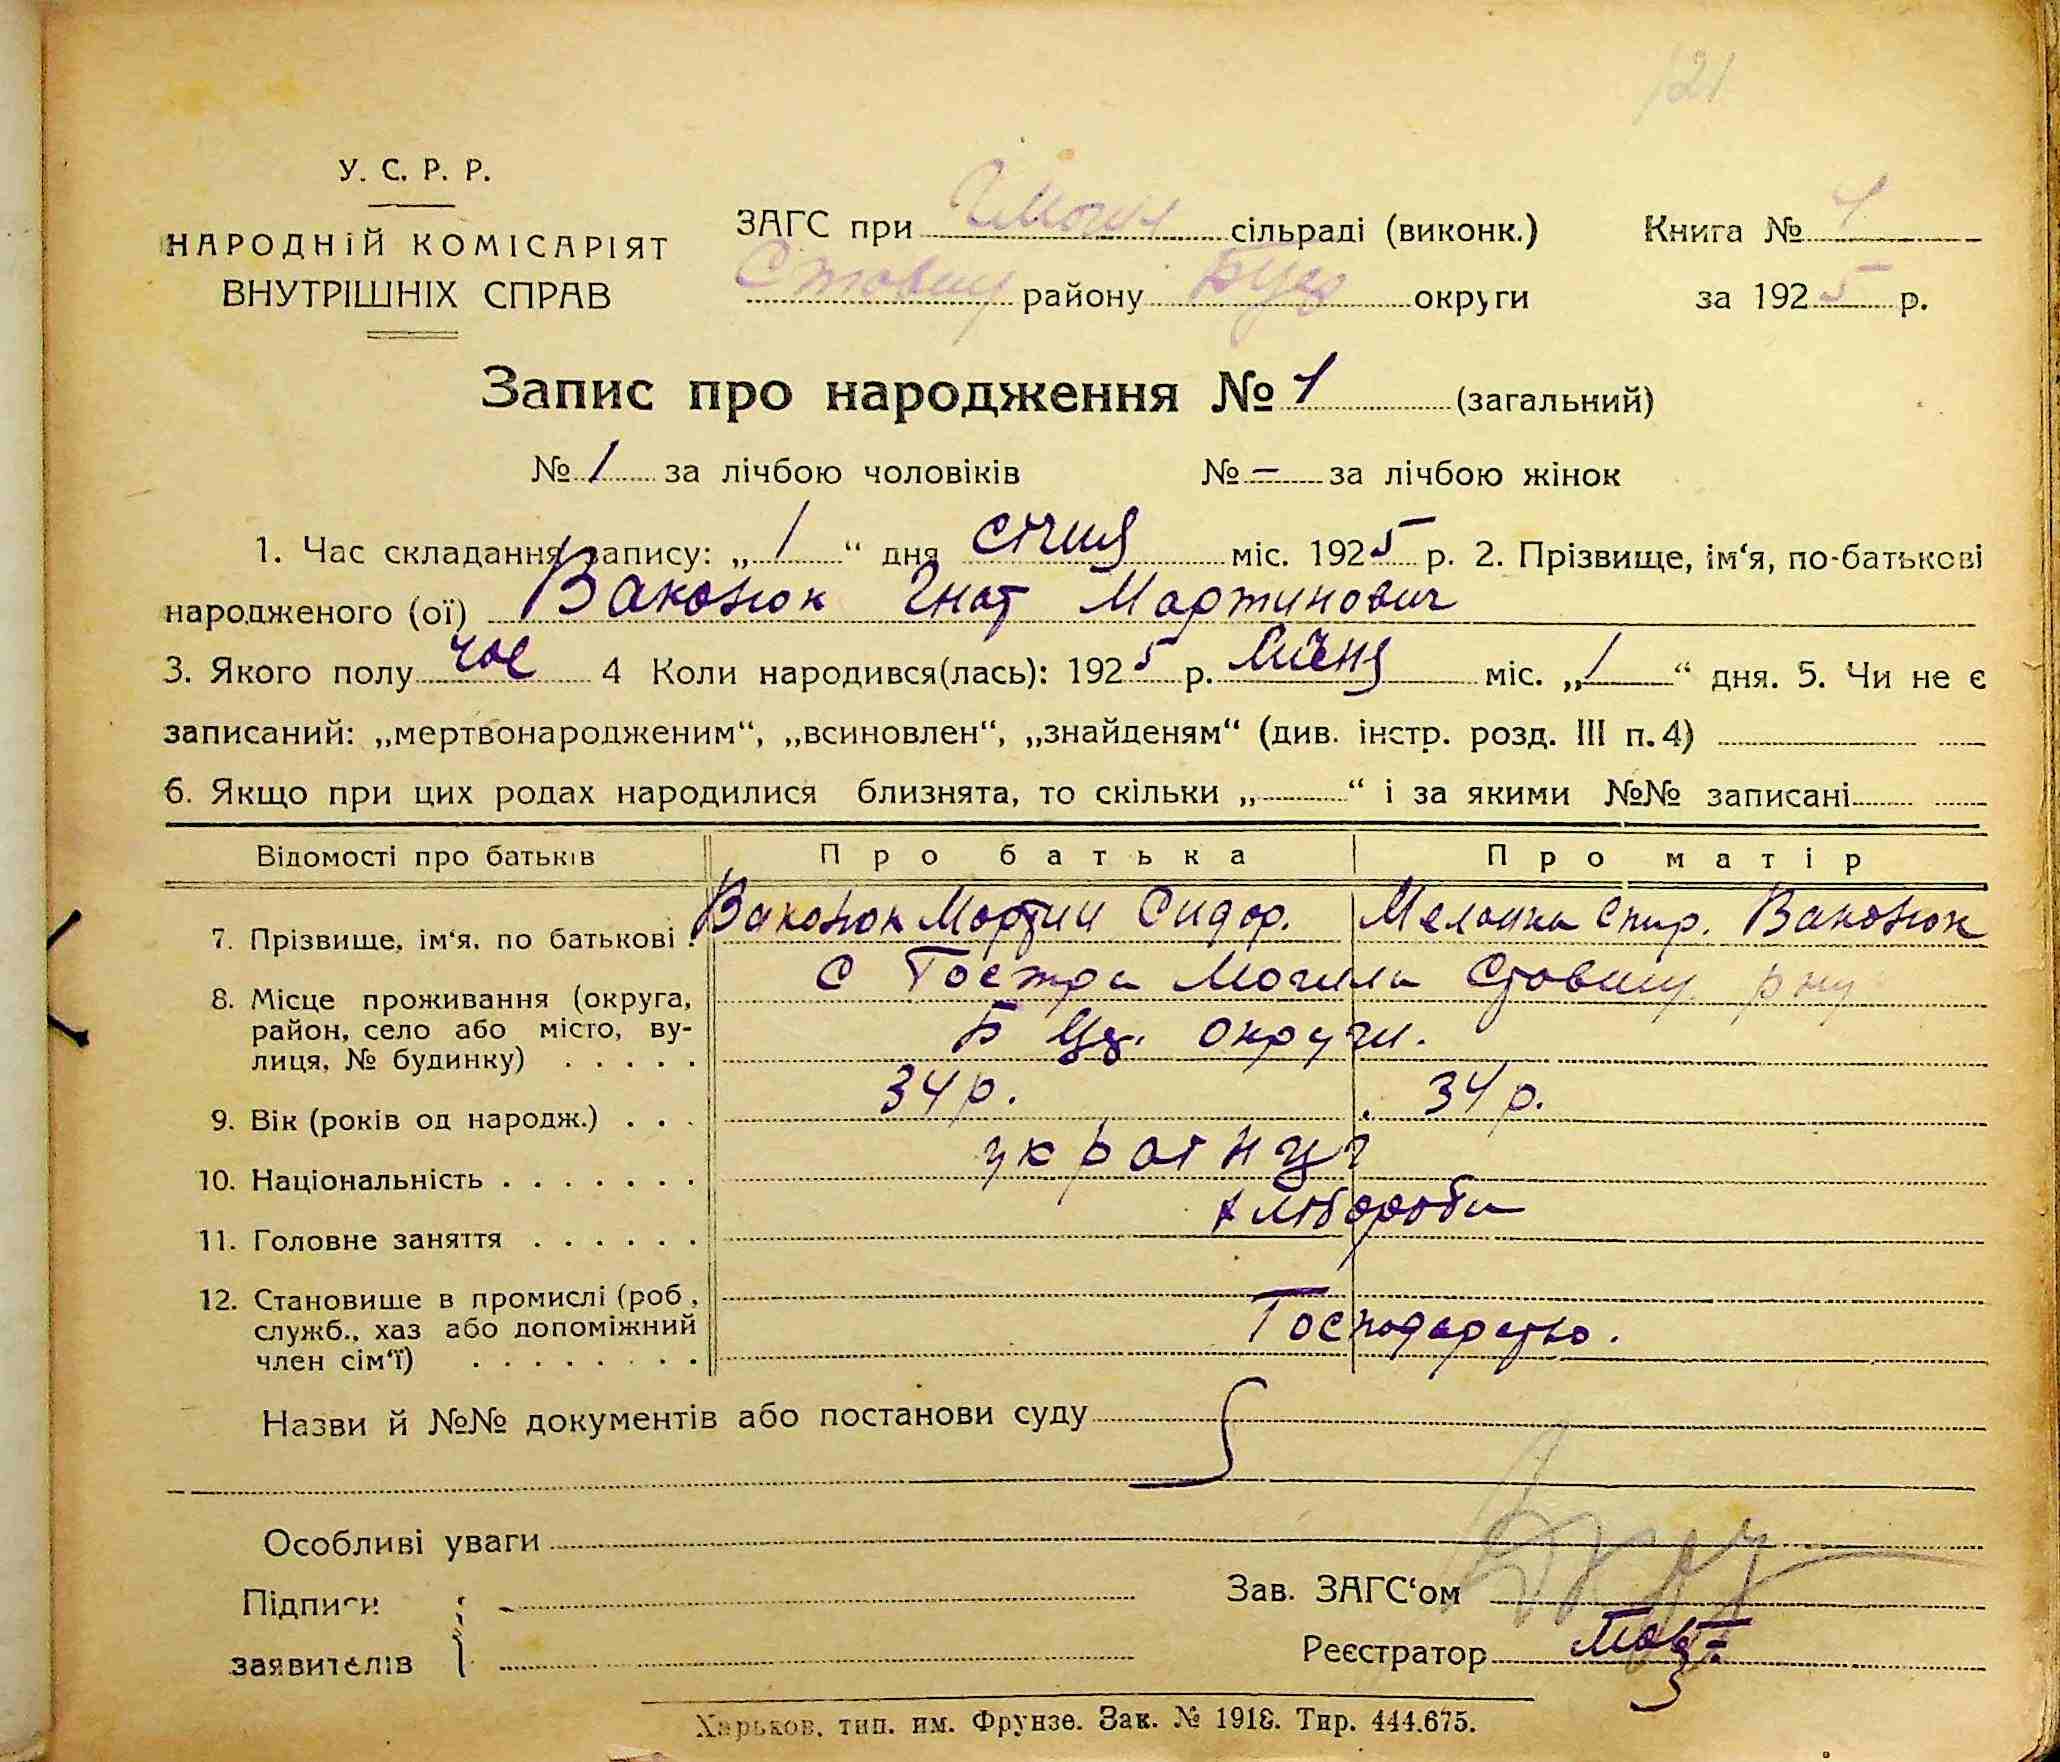 121
У. С. Р. Р.
НАРОДНІЙ КОМІСАРІЯТ
ВНУТРІШНІХ СПРАВ
ЗАГС при Гмогил сільраді (виконк.) Книга № 1
Ставищ району Бцер округи за 1925 р.
Запис про народження № 1 (загальний)
№ 1 за лічбою чоловіків № – за лічбою жінок
1. Час складання запису: „1“ дня січня міс. 1925 р. 2. Прізвище, ім‘я, по-батькові
народженого (ої) Ваконюк Гнат Мартинович
3. Якого полу чол 4 Коли народився(лась): 1925 р. січня міс. „1“ дня. 5. Чи не є
записаний: „мертвонародженим“, „всиновлен“, „знайденям“ (див. інстр. розд. III п. 4)
6. Якщо при цих родах народилися близнята, то скільки „ “ і за якими №№ записані
Відомості про батьків Про батька Про матір
7. Прізвище, ім‘я, по батькові Ваконюк Мартин Сидор. Меланка Спир. Ваконюк
8. Місце проживання (округа, с Гостра Могила Ставищ р ну
район, село або місто, ву-
лиця, № будинку) Б Цер. округи.
9. Вік (років од народж.) 34 р. 34 р.
10. Національність українці
11. Головне заняття хлібороби
12. Становище в промислі (роб,
служб., хаз або допоміжний Господарство.
член сім‘ї)
Назви й №№ документів або постанови суду
Особливі уваги
Підписи
заявителів
Зав. ЗАГС‘ом
Реєстратор
Харьков, тип. им. Фрунзе. Зак. № 1918. Тир. 444.675.